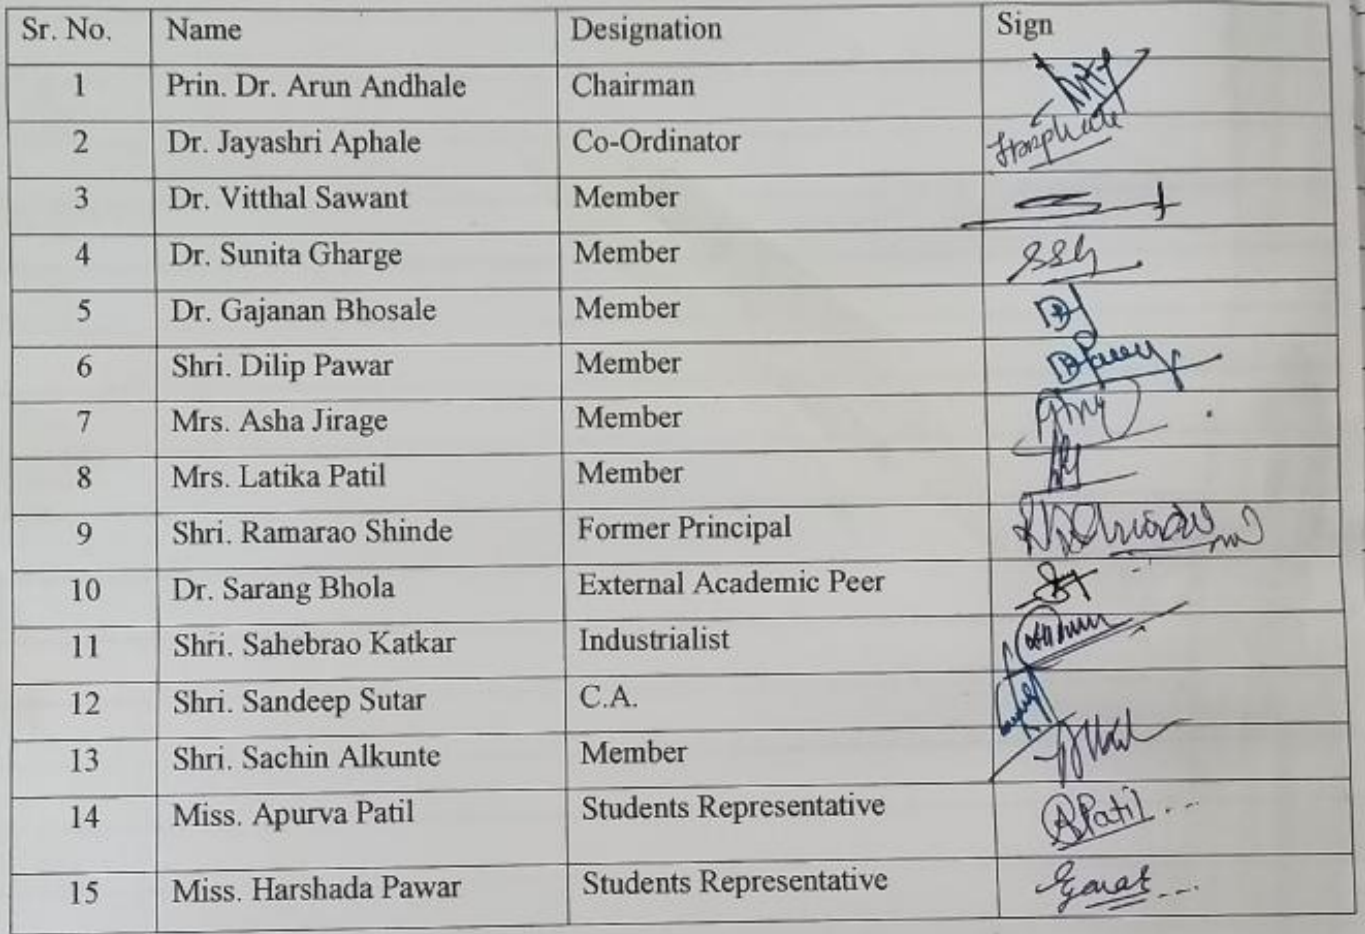 Sr. No. Name Designation Sign
1 Prin. Dr. Arun Andhale Chairman
2 Dr. Jayashri Aphale Co-Ordinator
3 Dr. Vitthal Sawant Member
4 Dr. Sunita Gharge Member
5 Dr. Gajanan Bhosale Member
6 Shri. Dilip Pawar Member
7 Mrs. Asha Jirage Member
8 Mrs. Latika Patil Member
9 Shri. Ramarao Shinde Former Principal
10 Dr. Sarang Bhola External Academic Peer
11 Shri. Sahebrao Katkar Industrialist
12 Shri. Sandeep Sutar C.A.
13 Shri. Sachin Alkunte Member
14 Miss. Apurva Patil Students Representative APatil
15 Miss. Harshada Pawar Students Representative